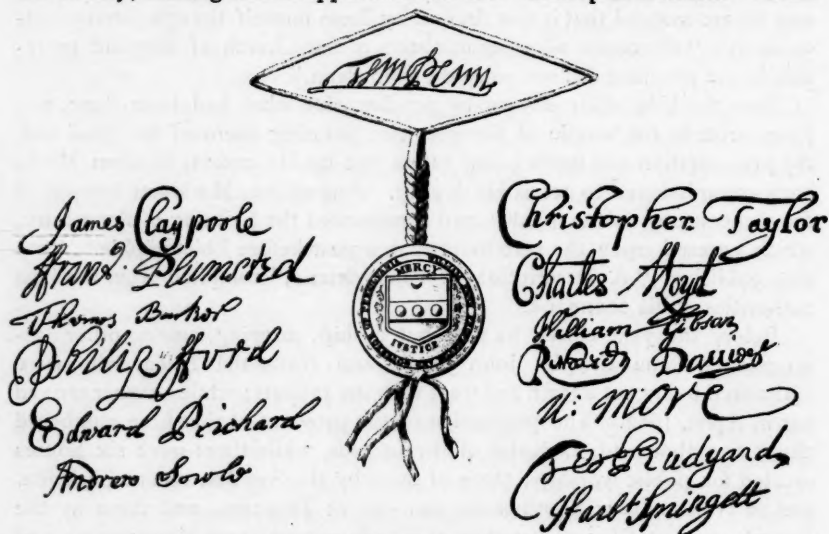 Wm Penn
James Claypoole
Franc Plumsted
Thomas Barker
Philip fford
Edward Prichard
Andrew Sowle
MERCY
JUSTICE
Christopher Taylor
Charles Lloyd
William Gibson
Richard Davies
N: More
Tho Rudyard
Harbt Springett